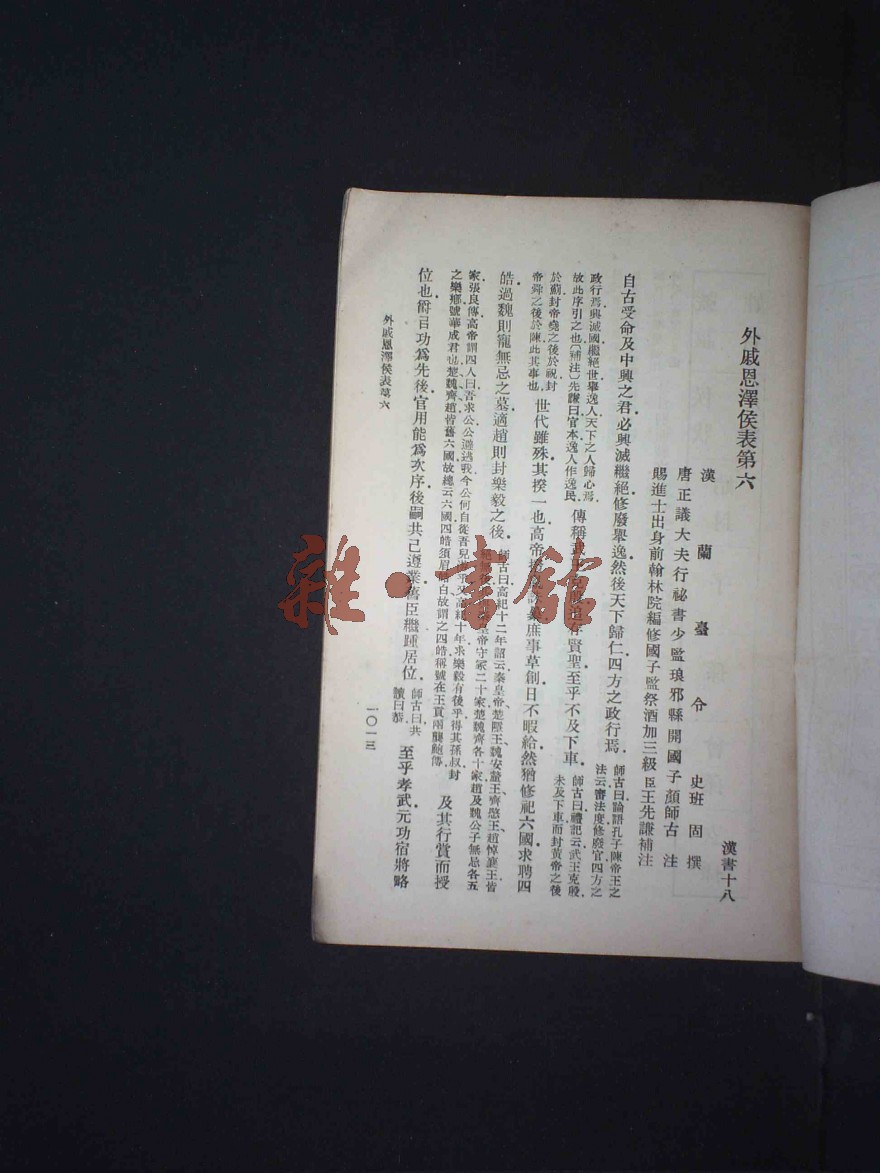 外戚恩澤侯表第六
漢書十八
漢蘭臺令史班固撰
唐正議大夫行祕書少監琅邪縣開國子顏師古注
賜進士出身前翰林院編修國子監祭酒加三級臣王先謙補注
自古受命及中興之君必興滅繼絕修廢舉逸然後天下歸仁四方之政行焉
師古曰論語孔子陳帝王之
法云審法度修廢官四方之
政行焉興滅國繼絕世舉逸人天下之人歸心焉
故此序引之也〔補注〕先謙曰官本逸人作逸民
傳稱武王克殷追存賢聖至乎不及下車
師古曰禮記云武王克殷
未及下車而封黃帝之後
於薊封帝堯之後於祝封
帝舜之後於陳此其事也
世代雖殊其揆一也高帝撥亂誅暴庶事草創日不暇給然猶修祀六國求聘四
皓過魏則寵無忌之墓適趙則封樂毅之後
師古曰高紀十二年詔云秦皇帝楚隱王魏安釐王齊愍王趙悼襄王皆
守冢二十家楚魏齊各十家趙及魏公子無忌各五
家張良傳高帝謂四人曰吾求公公避逃我今公何自從吾兒游乎又高紀十年求樂毅有後乎得其孫叔封
之樂鄉號華成君也楚魏齊趙皆舊六國故總云六國四皓須眉皓白故謂之四皓稱號在王貢兩龔鮑傳
及其行賞而授
位也爵㠯功爲先後官用能爲次序後嗣共己遵業舊臣繼踵居位
師古曰共
讀曰恭
至乎孝武元功宿將略
外戚恩澤侯表第六
一〇一三
雜·書館